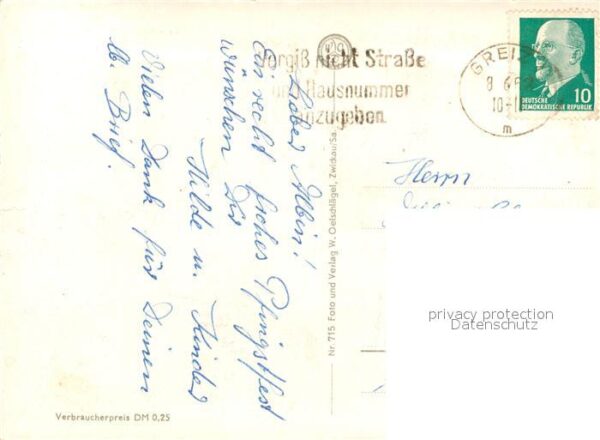 Vergiß nicht Straße
Hausnummer
anzugeben.
GREIZ
8 6
10-1
m
10
DEUTSCHE
DEMOKRATISCHE REPUBLIK
Lieber Albin!
Ein recht frohes Pfingstfest
wünschen Dir
Hilde u. Kinder
Vielen Dank für Deinen
lb. Brief.
Herrn
Nr. 715 Foto und Verlag W. Oelschlägel, Zwickau/Sa.
privacy protection
Datenschutz
Verbraucherpreis DM 0,25